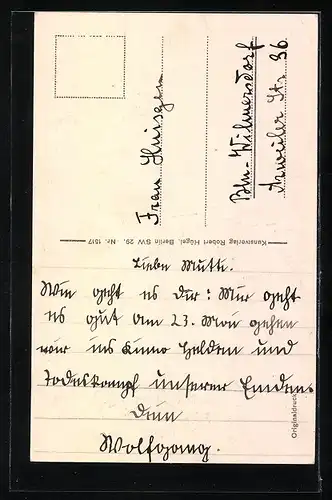 Liebe Mutti.
Wie geht es dir? Mir geht
es gut am 23. Mai gehen
wir ins Kinno Helden und
Todeskampf unserer Emden.
Dein
Wolfgang.
Frau
Bln-Wilmersdorf
Str. 36
Kunstverlag Robert Högel, Berlin SW 29. Nr. 1517
Originaldruck